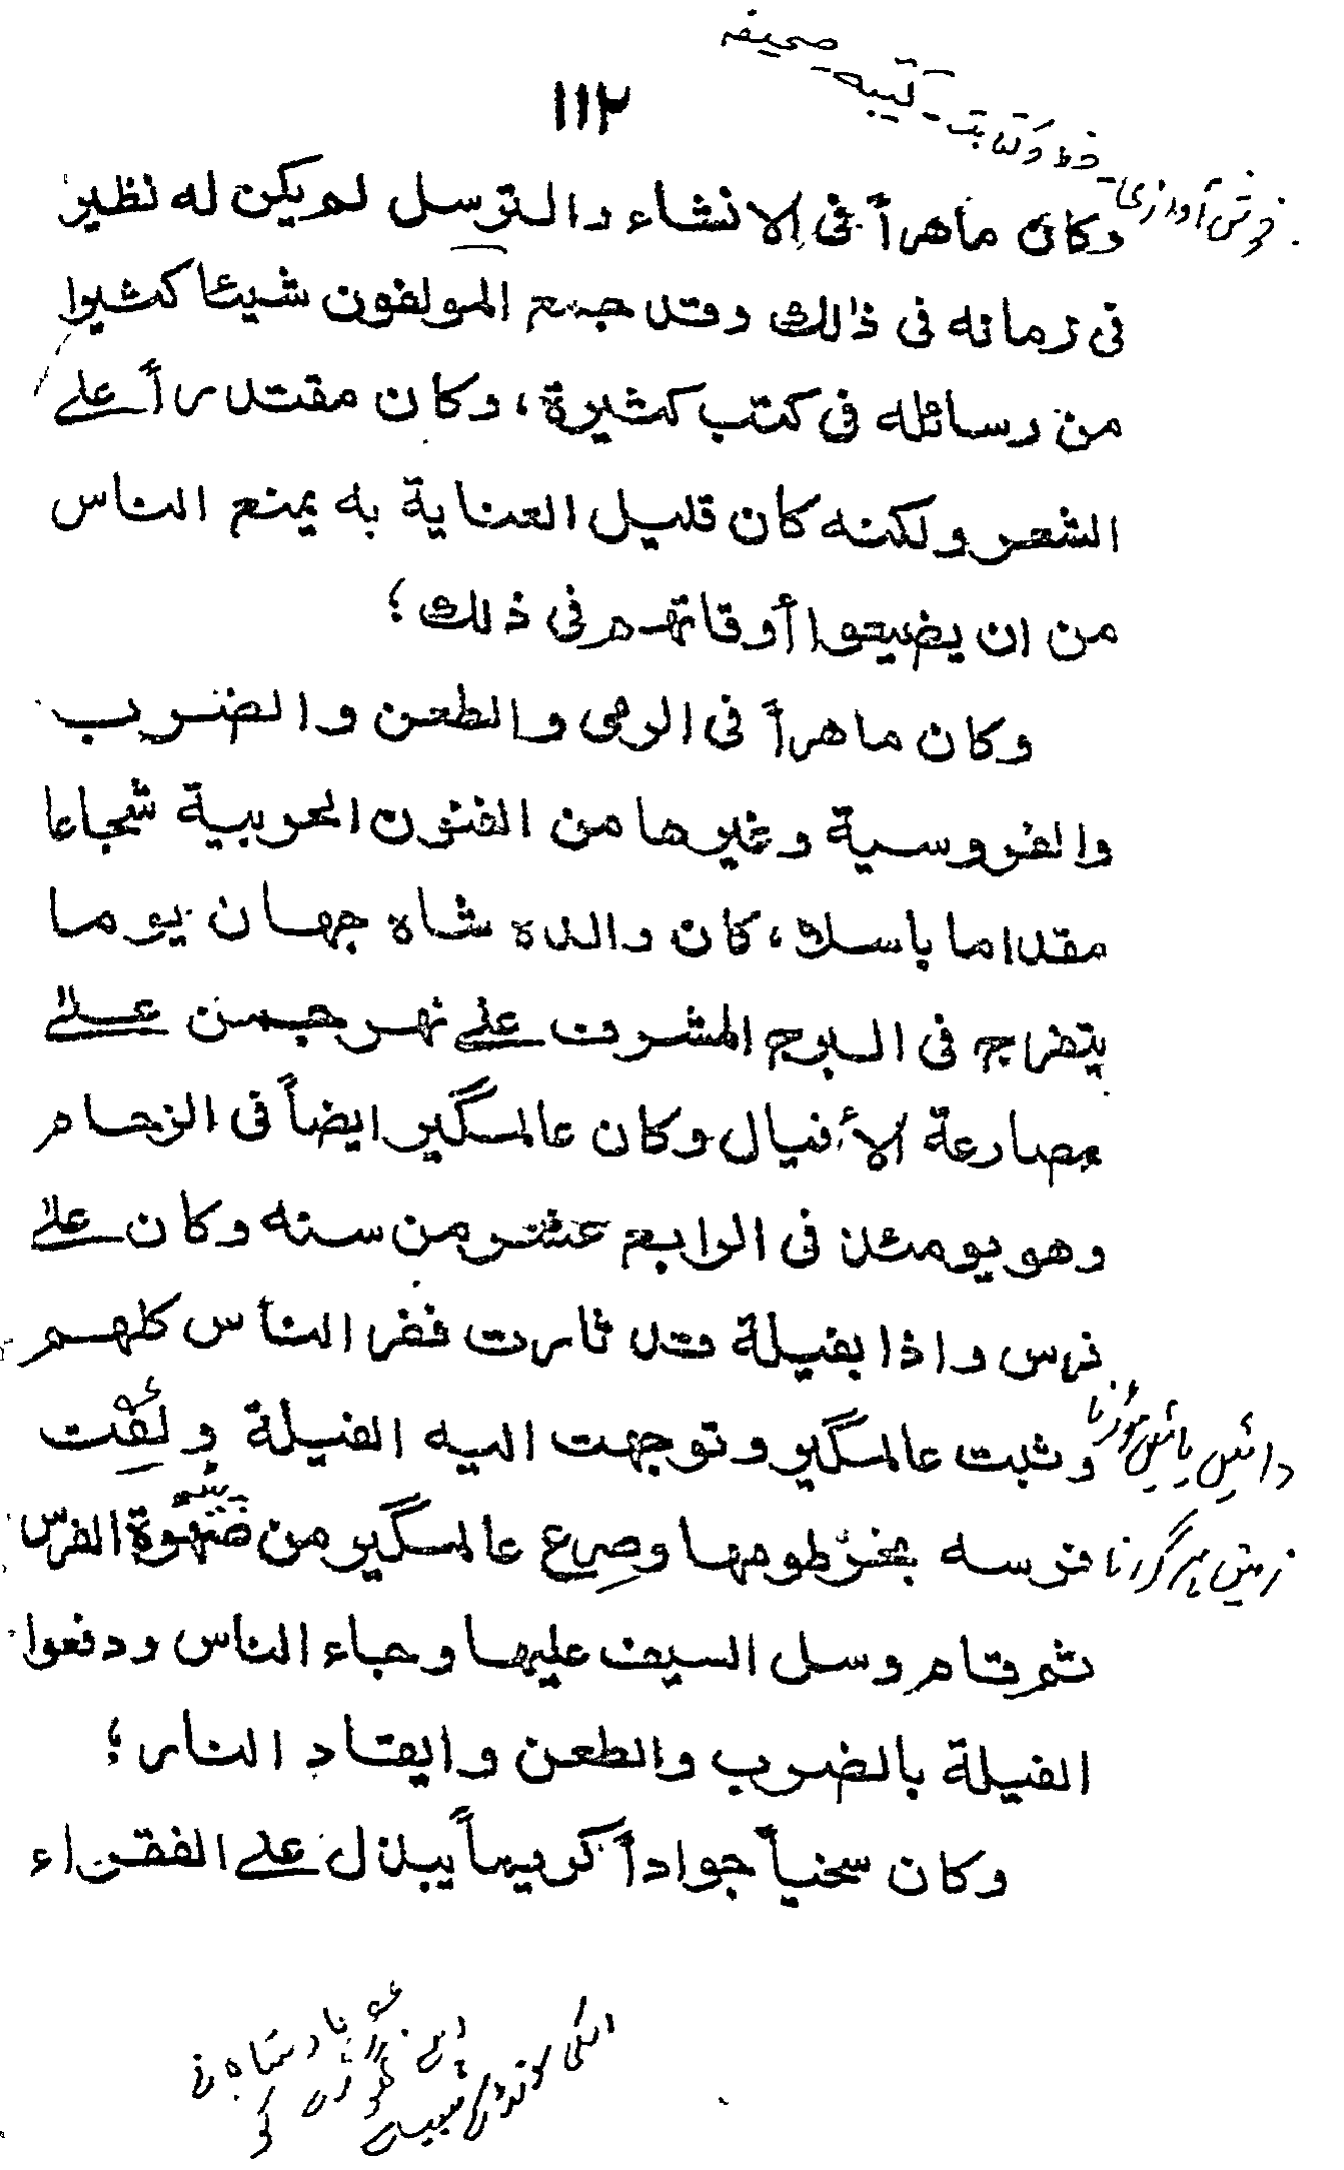 صحيفہ
کتیبہ
خط و کتابت
خوش آوازی
١١٢
وكان ماهراً في الانشاء والترسل لم يكن له نظير
في زمانه في ذالك وقد جمع المولفون شيئا كثيرا
من رسائله في كتب كثيرة، وكان مقتدراً علے
الشعر ولكنه كان قليل العناية به يمنع الناس
من ان يضيعوا أوقاتهم في ذلك؛
وكان ماهراً في الرمى والطعن والضرب
والفروسية وغيرها من الفنون الحربية شجاعا
مقداما باسلا، كان والده شاه جهان يوما
يتفراج في البرج المشرف علے نهر جمن علے
مصارعة الأفيال وكان عالمگير ايضاً في الزحام
وهو يومئذ في الرابع عشر من سنه وكان علے
فرس واذا بفيلة قد ثارت ففر الناس كلهم
وثبت عالمگير وتوجهت اليه الفيلة ولَفَّت
دائیں بائیں موڑنا
فرسه بخرطومها وصرع عالمگير من صَهْوة الفرس
زمین پر گرانا
ثم قام وسل السيف عليها وجاء الناس ودفعوا
الفيلة بالضرب والطعن وايقاد النار؛
وكان سخياً جواداً كريماً يبذل علے الفقراء
بادشاہ نے